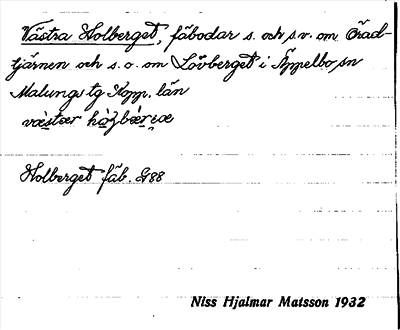 Västra Holberget, fäbodar s. och s.v. om Örad-
tjärnen och s.o. om Lövberget i Äppelbo sn
Malungs tg Kopp. län
väster
Holberget fäb. G88
Niss Hjalmar Matsson 1932